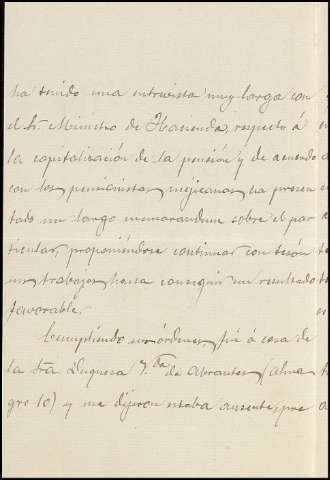 ha tenido una entrevista muy larga con
el Sr. Ministro de Hacienda, respecto á
la capitalización de la pensión y de acuerdo
con los pensionistas mejicanos, ha presen
tado un largo memorandum sobre el par
ticular, proponiéndose continuar con tesón
sus trabajos hasta conseguir un resultado
favorable.
Cumpliendo sus órdenes, fuí á casa de
la Sra. Duquesa V.da de Abrantes (Alma
gro 10) y me dijeron estaba ausente, pre